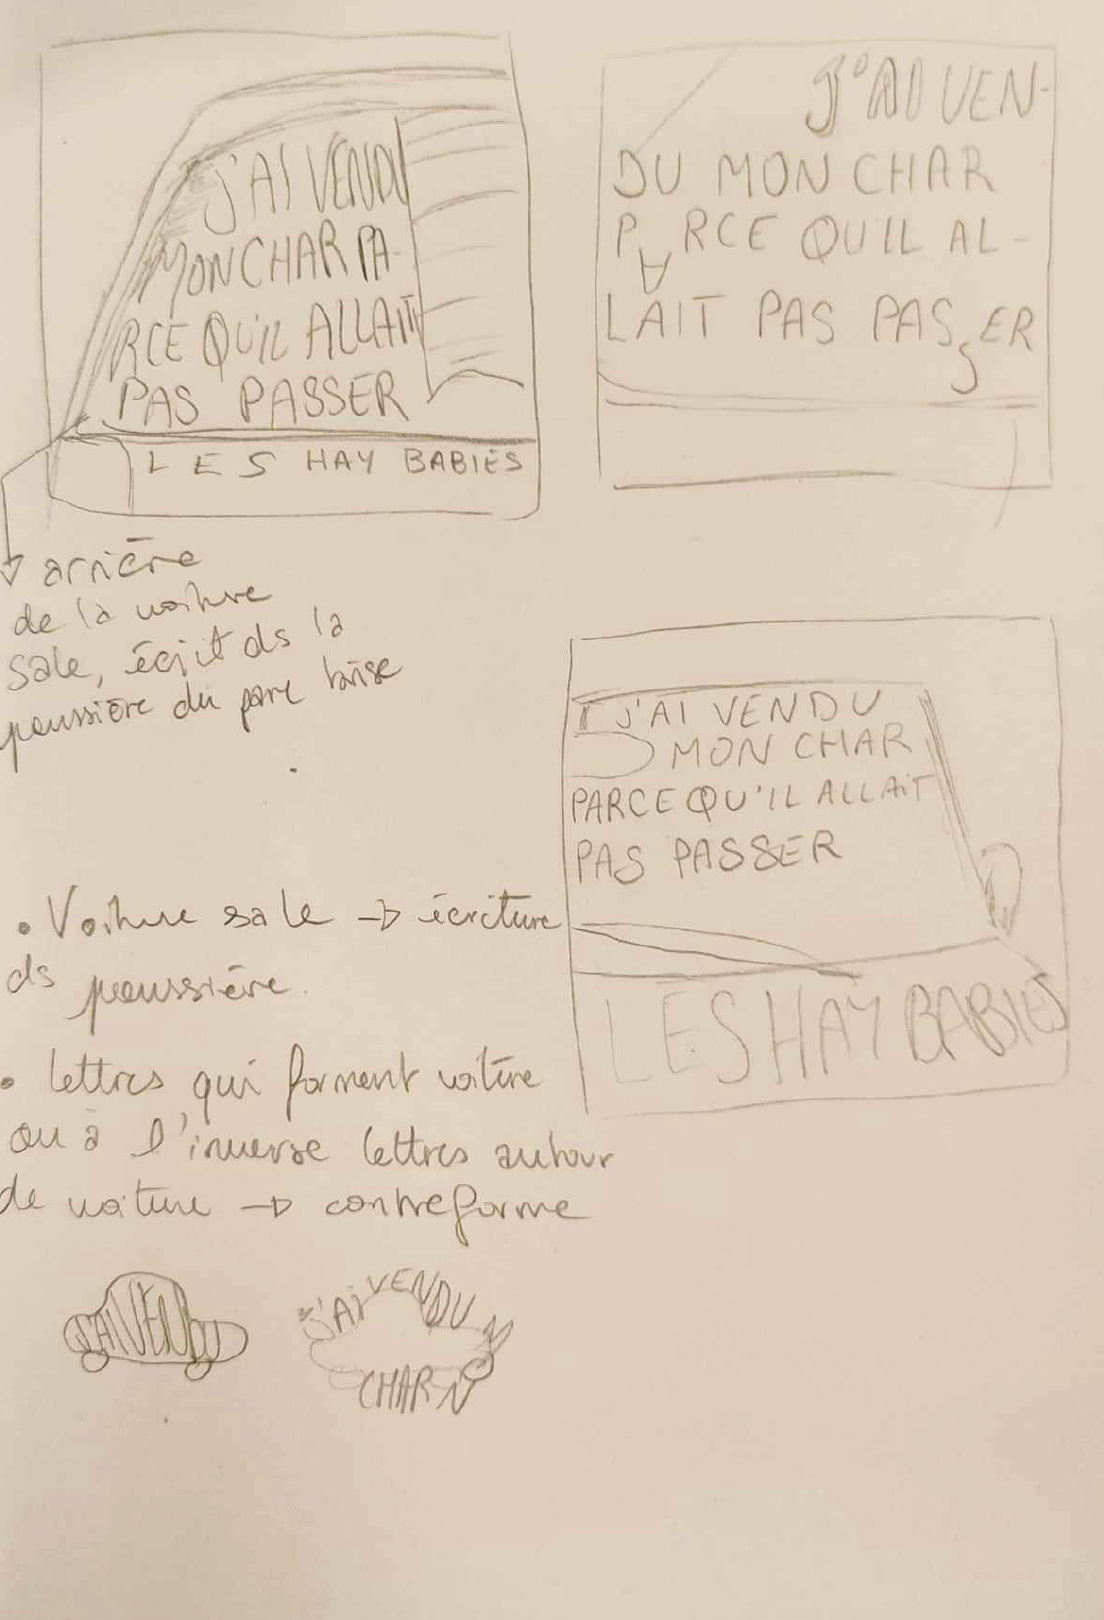 J'AI VENDU
MON CHAR PA-
RCE QU'IL ALLAIT
PAS PASSER
LES HAY BABIES
J'AI VEN-
DU MON CHAR
PARCE QU'IL AL-
LAIT PAS PASSER
arrière
de la voiture
sale, écrit ds la
poussière du pare brise
J'AI VENDU
MON CHAR
PARCE QU'IL ALLAIT
PAS PASSER
LES HAY BABIES
• Voiture sale → écriture
ds poussière.
• lettres qui forment voiture
ou à l'inverse lettres autour
de voiture → contreforme
J'AI VENDU
J'AI VENDU M
CHAR N